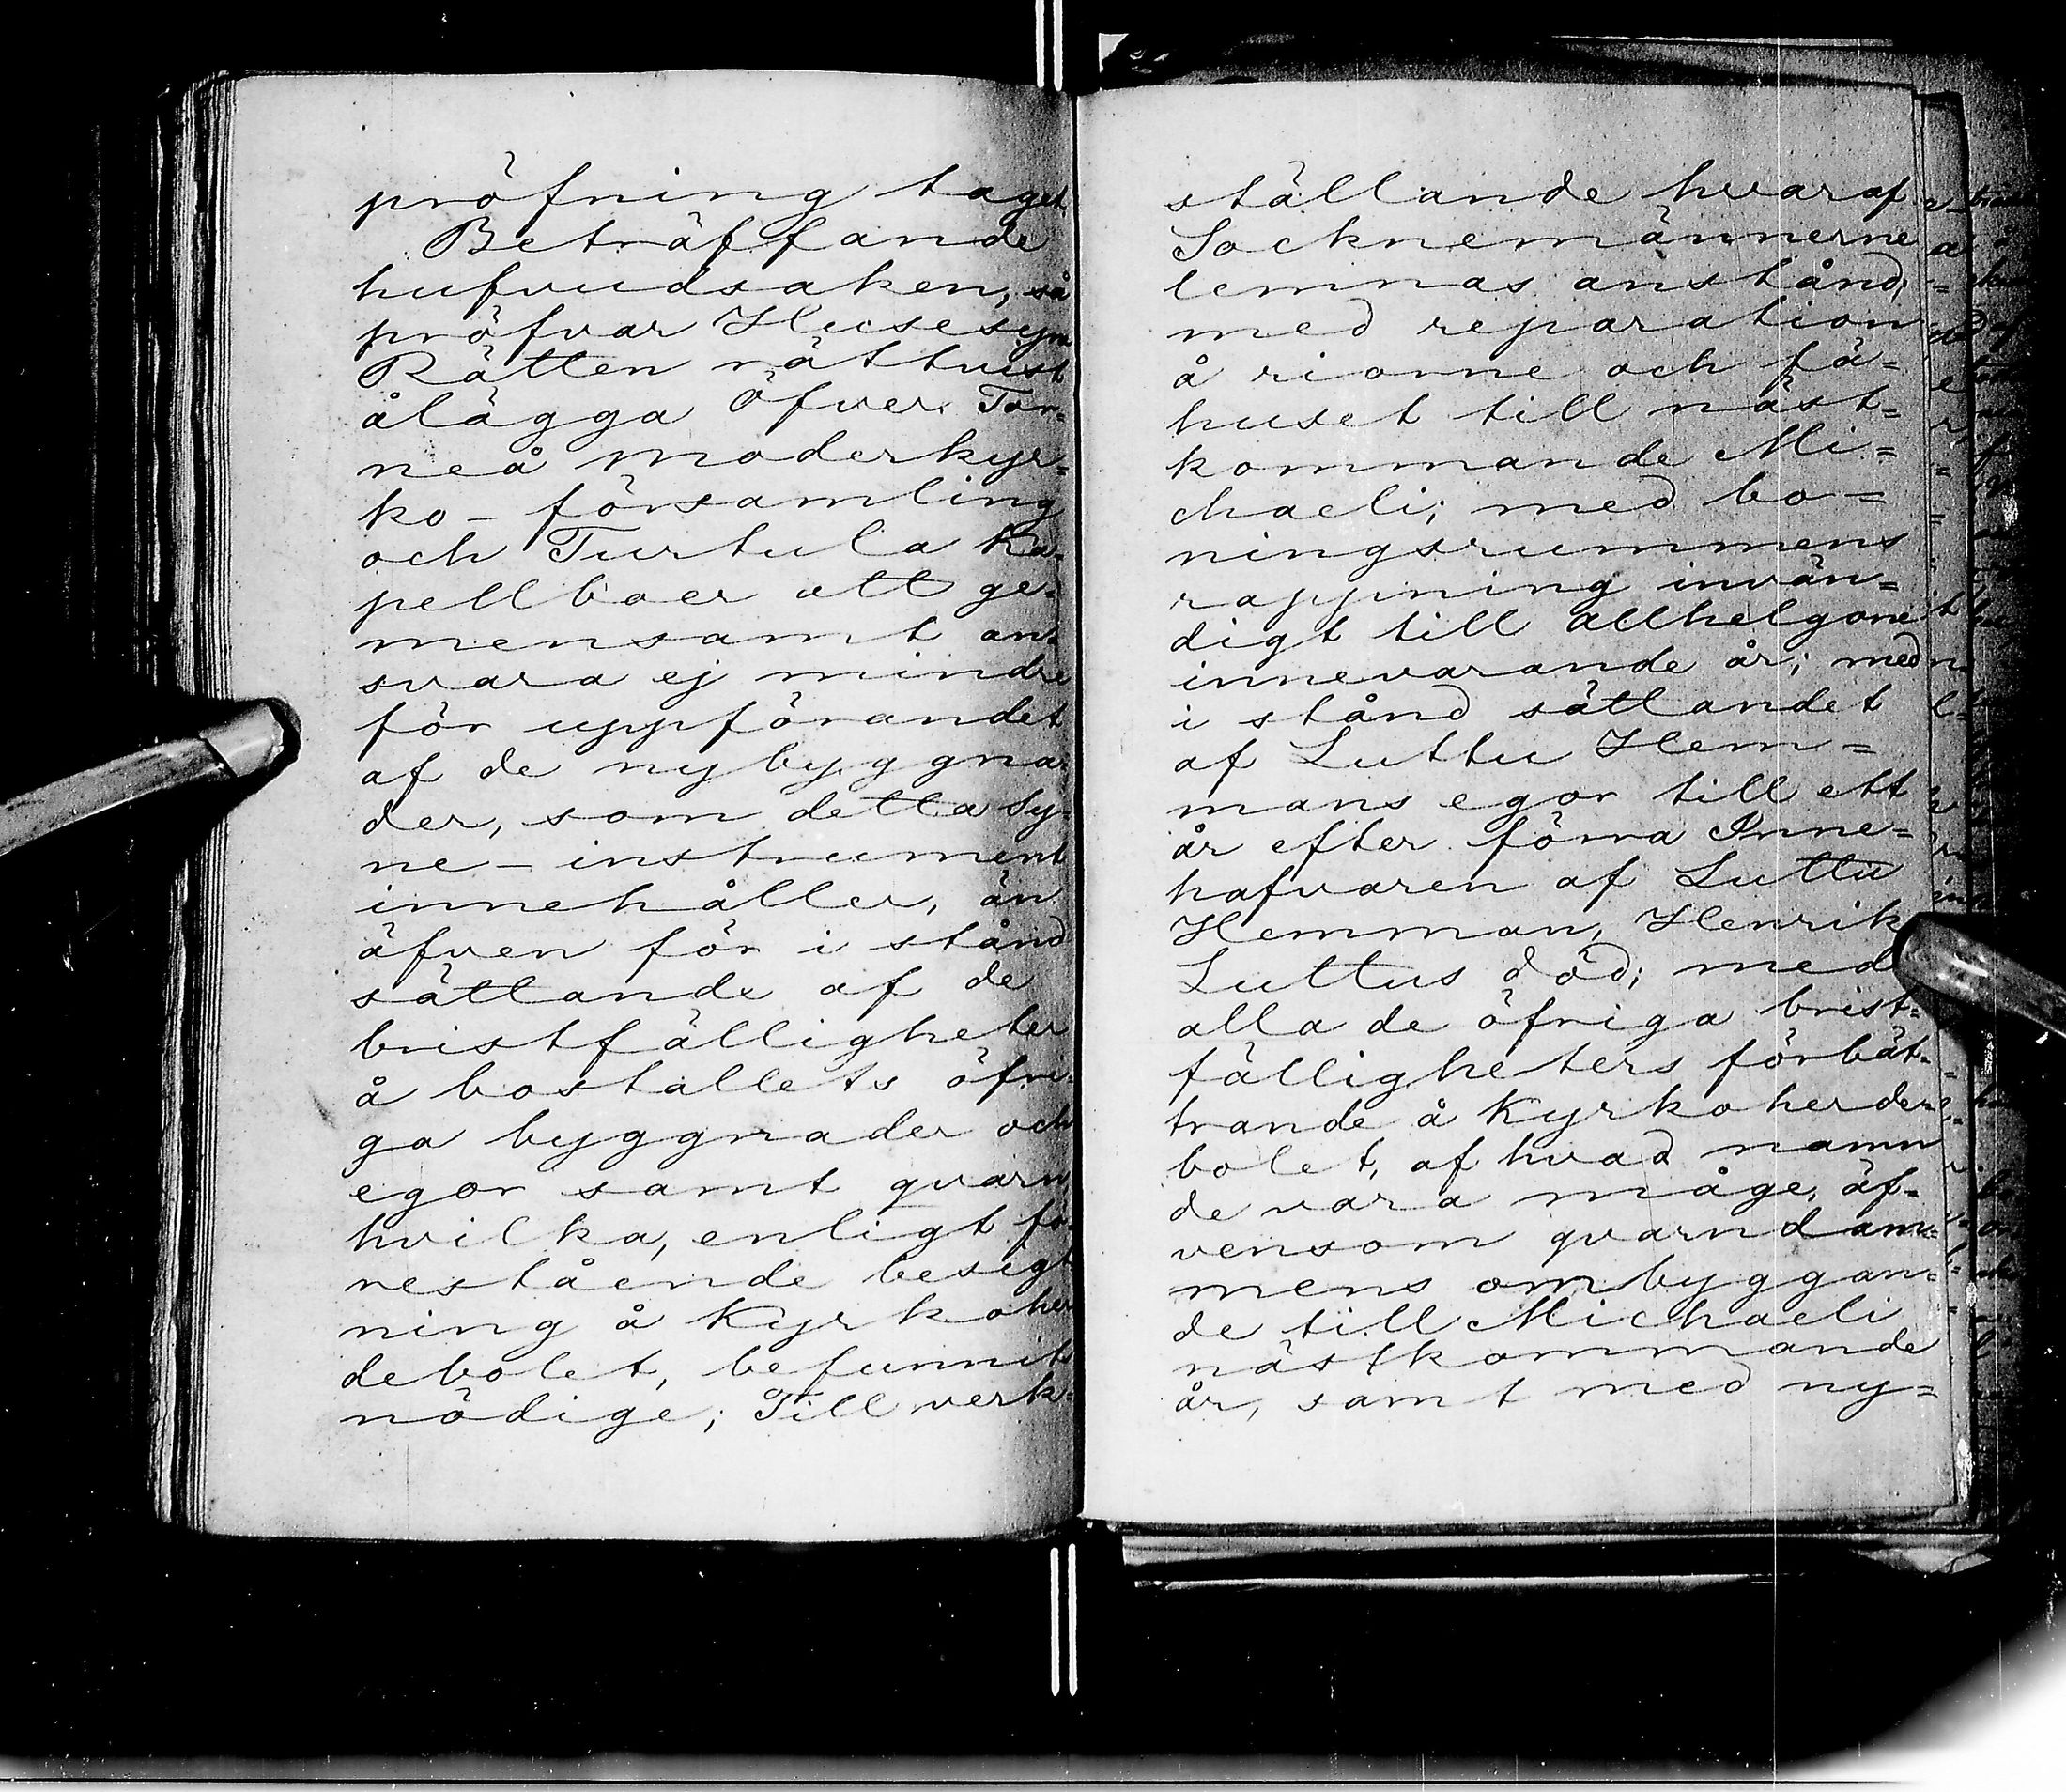 pröfning taget.
Beträffande
hufvudsaken, så
pröfvar Husesyns
Rätten rättvist
ålägga Öfver Tor=
neå moderkyr=
ko-församling
och Turtula Ka=
pellboer att ge=
mensamt an=
svara ej mindre
för uppförandet
af de nybyggna=
der, som detta Sy=
ne-instrument
innehåller, än
äfven för i stånd
sättande af de
bristfälligheter
å boställets öfri=
ga byggnader och
egor samt qvarn,
hvilka, enligt fö=
restående besigt
ning å Kyrkoher
debolet, befunnits
nödige; Till verk=
ställande hvaraf
Socknemännerne
lemnas anstånd;
med reparation
å riorne och fä=
huset till näst=
kommande Mi=
chaeli; med bo=
ningsrummens
rappning invän=
digt till Allhelgone
innevarande år; med
i stånd sättandet
af Luttu Hem=
mans egor till ett
år efter förra Inne=
hafvaren af Luttu
Hemman, Henrik
Luttus död; med
alla de öfriga brist=
fälligheters förbät=
trande å Kyrkoherde
bolet, af hvad namn
de vara måge, äf=
vensom qvarndam=
mens ombyggan=
de till Michaeli
nästkommande
år, samt med ny=